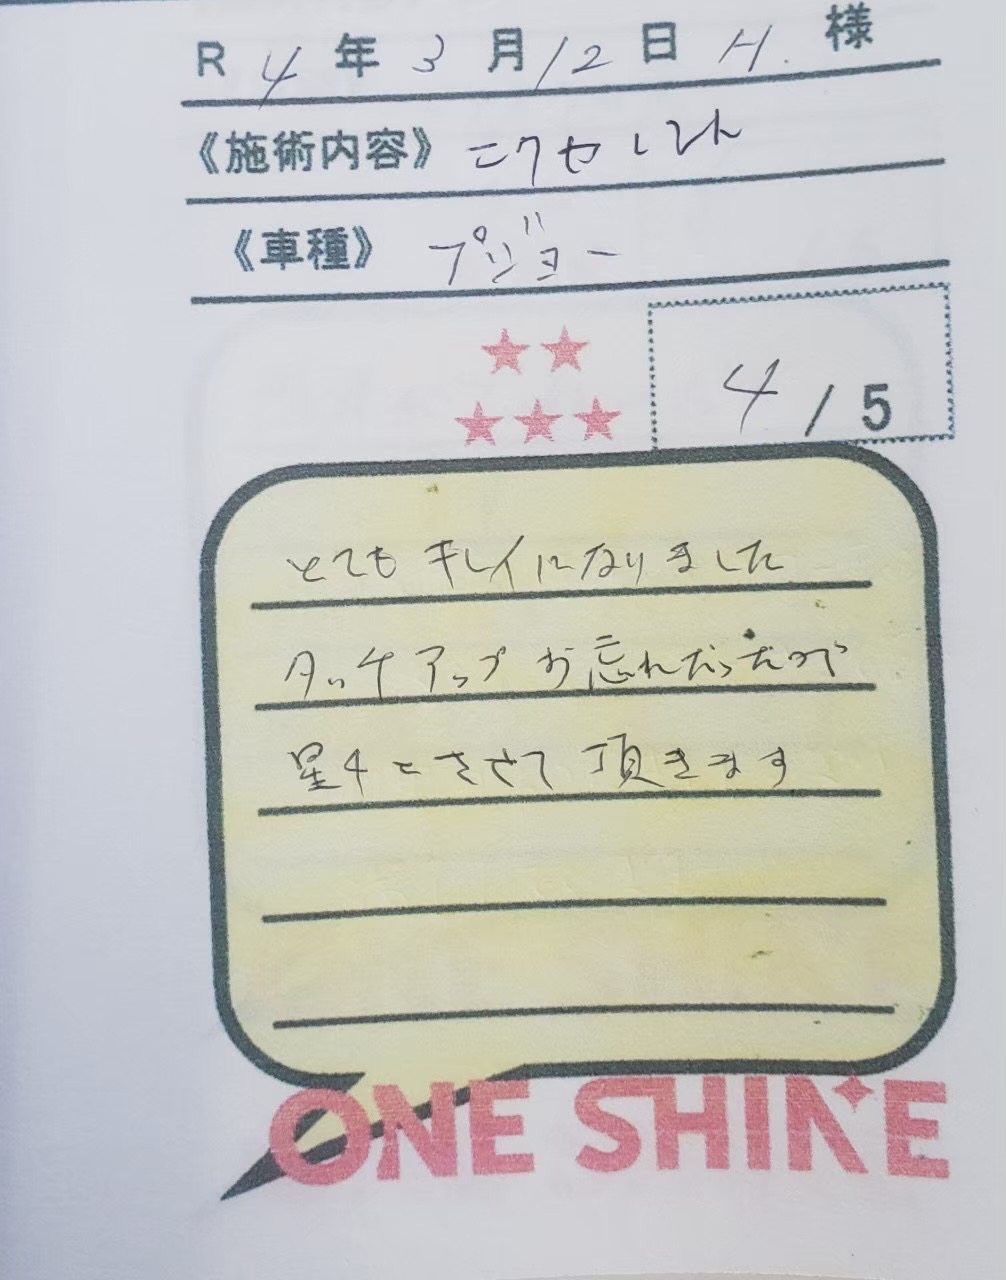 R 4 年 3 月 12 日 H. 様
《施術内容》 エクセレント
《車種》 プジョー
4 / 5
とても キレイになりました
タッチアップ お忘れだったので
星4とさせて頂きます
ONE SHINE